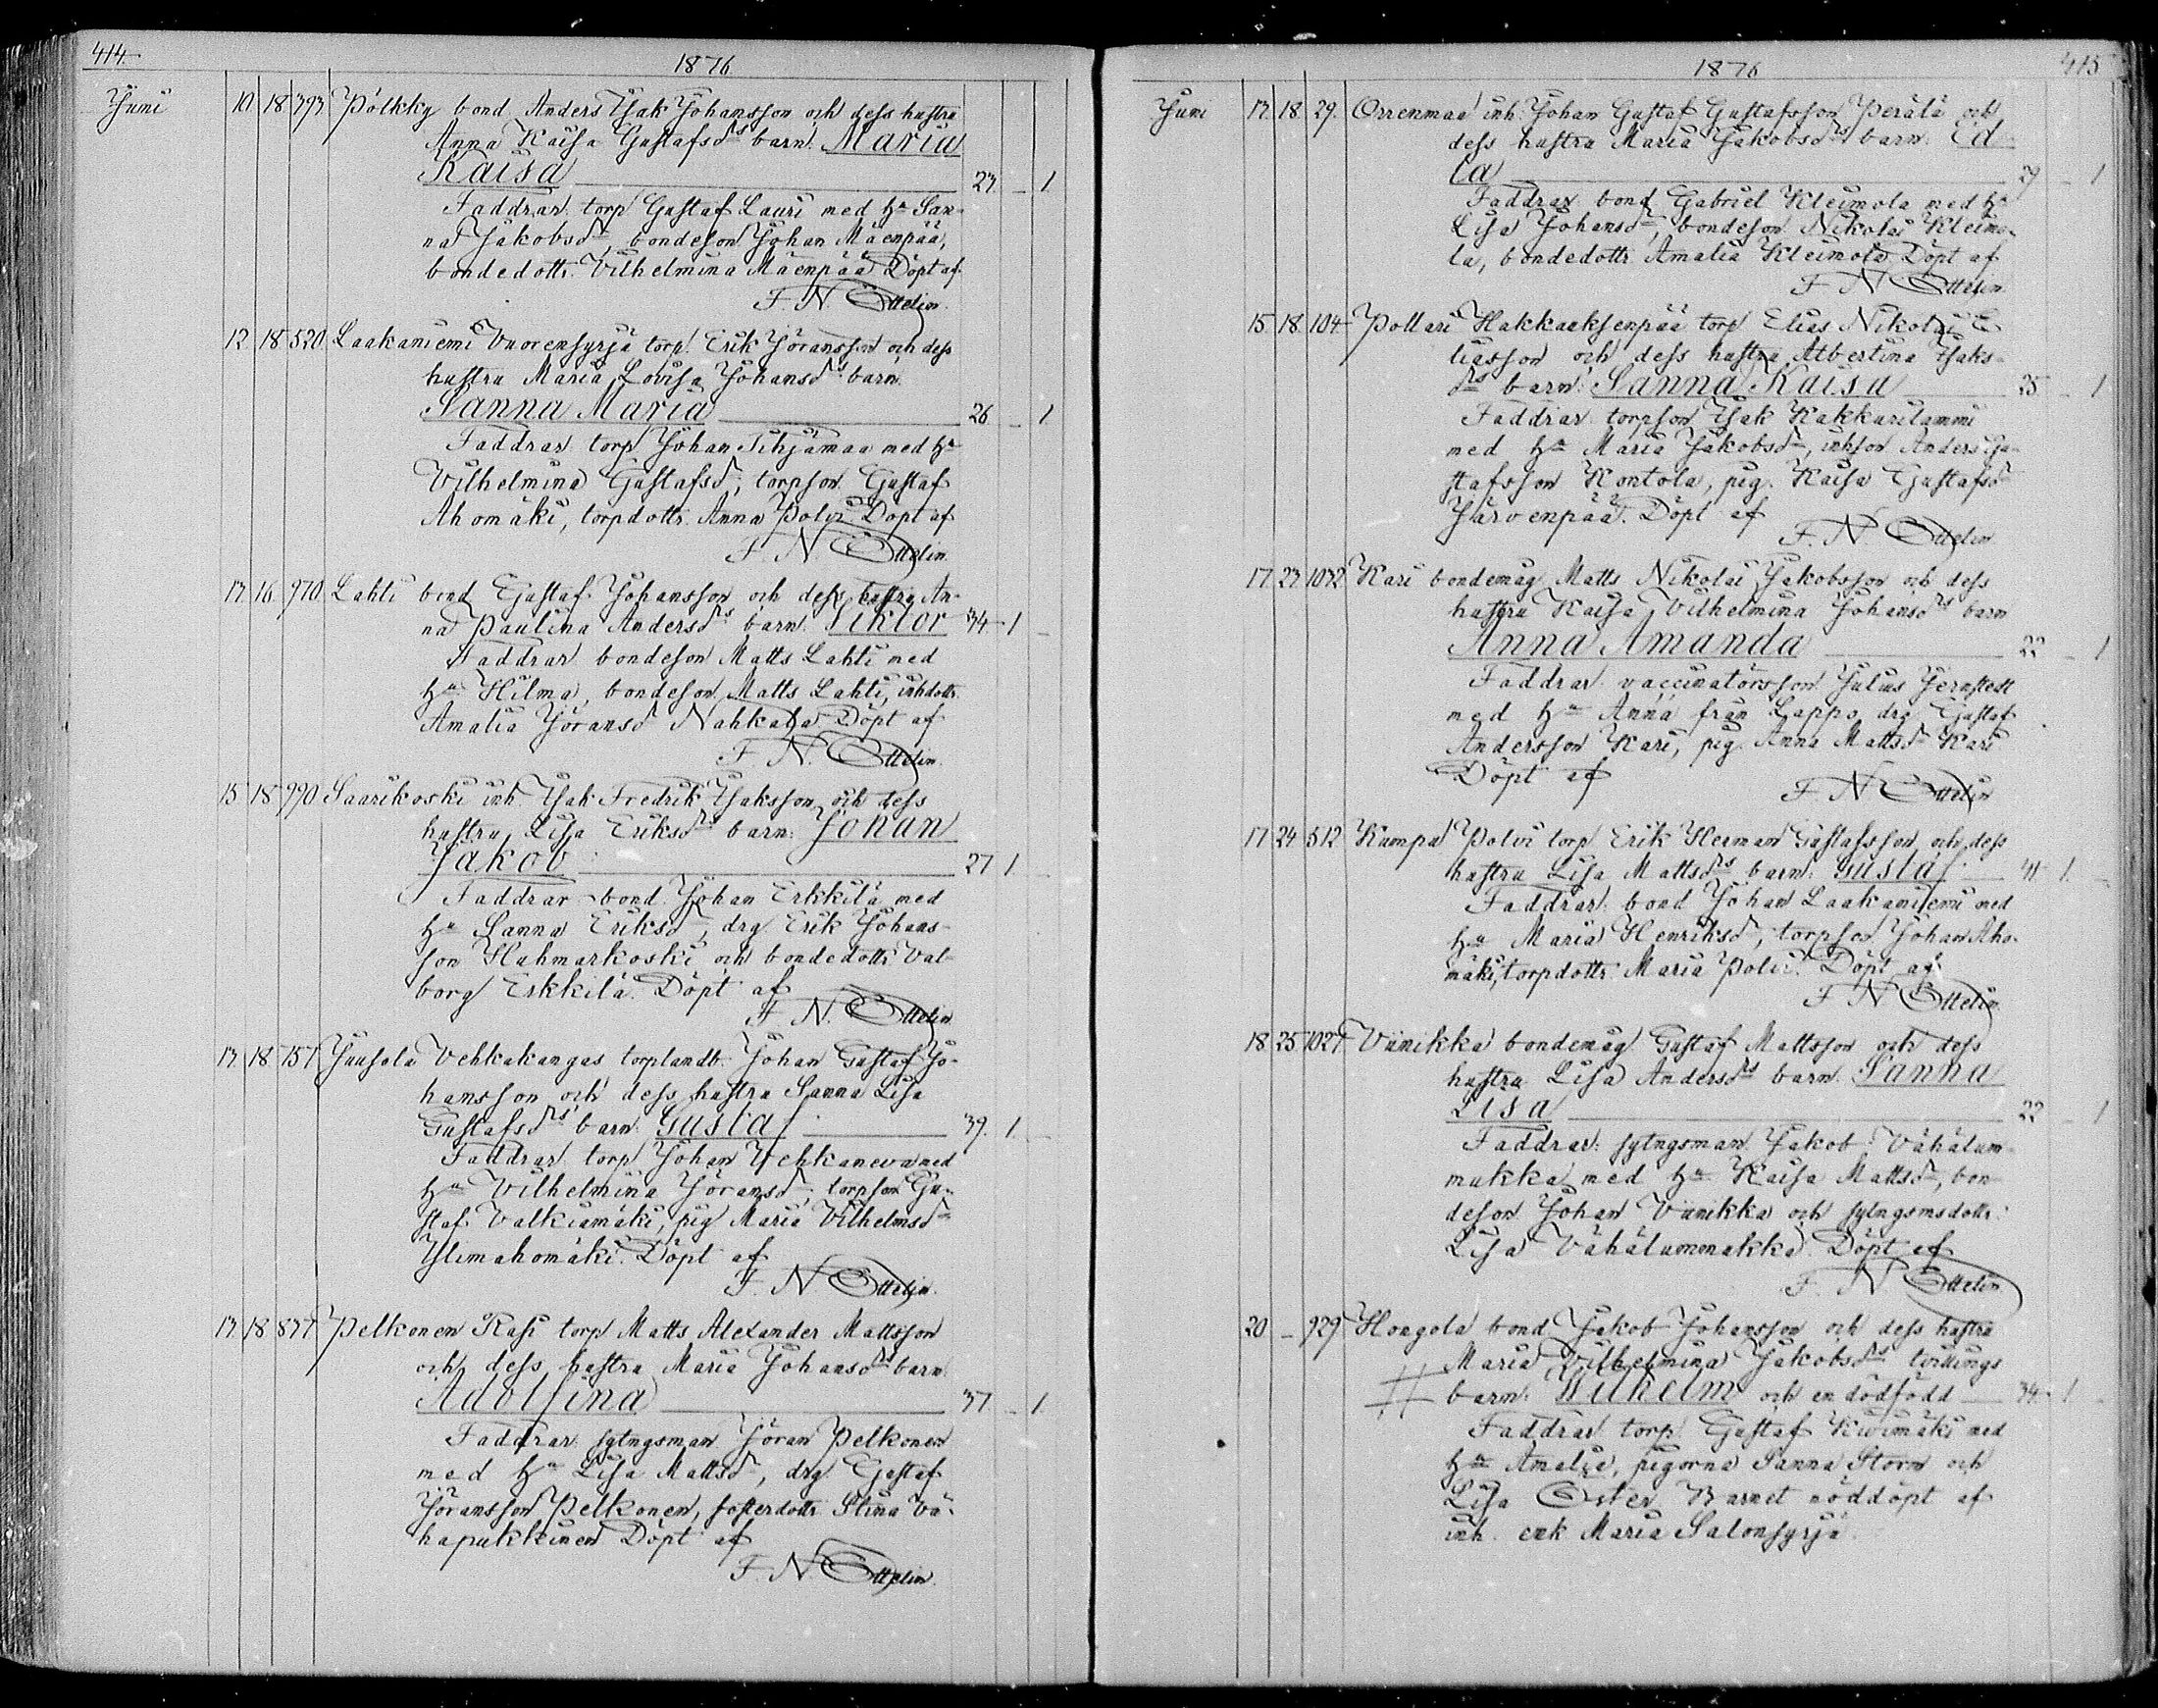 414.
1876
Juni 10 18 393 Pölkky bond. Anders Isak Johansson och dess hustru
Anna Kaisa Gustafsdrs barn: Maria
Kaisa 23 – 1
Faddrar: torp Gustaf Lauri med hu San-
na Jakobsdr, bondeson Johan Mäenpää,
bondedottr. Vilhelmina Mäenpää Döpt af
F. N. Ottelin.
12 18 520 Laakaniemi Vuorensyrjä torp. Erik Jöransson och dess
hustru Maria Lovisa Johansdrs barn:
Sanna Maria 26 – 1
Faddrar torp Johan Tihjämaa med hu
Vilhelmina Gustafsdr, torpson Gustaf
Ahomäki, torpdottr. Anna Polvi Döpt af
F. N. Ottelin.
13. 16. 970. Lahti bond Gustaf Johansson och dess hustru An-
na Paulina Andersdrs barn: Viktor 34 1 –
Faddrar bondeson Matts Lahti med
hu Hilma, bondeson Matts Lahti, inhdottr.
Amalia Jöransdr Nahkala Döpt af
F. N. Ottelin.
15 18 990 Saarikoski inh. Isak Fredrik Isaksson och dess
hustru Lisa Eriksdrs barn: Johan
Jakob 27 1
Faddrar bond. Johan Erkkilä med
hu Sanna Eriksdr, drg Erik Johans-
son Huhmarkoski och bondedottr. Val-
borg Erkkilä. Döpt af
F. N. Ottelin
13. 18 757 Juusola Vehkakangas torplandb. Johan Gustaf Jo-
hansson och dess hustru Sanna Lisa
Gustafsdrs barn: Gustaf 39. 1.
Faddrar torp Johan Vehkaneva med
hu Vilhelmina Jöransdr, torpson Gu-
staf Valkiamäki, pig Maria Vilhelmsdr
Ylimahomäki. Döpt af
F. N. Ottelin.
13. 18 837 Pelkonen Rasi torp Matts Alexander Mattsson
och dess hustru Maria Johansdrs barn:
Adolfina 37 – 1.
Faddrar: sytngsman Jöran Pelkonen
med hu Lisa Mattsdr, drg. Gustaf
Jöransson Pelkonen, fosterdottr Stina Vä-
hapukkinen Döpt af
F. N. Ottelin.
1876
415
Juni 13. 18 29. Orrenmaa inh. Johan Gustaf Gustafsson Perälä och
dess hustru Maria Jakobsdrs barn: Ed-
la 29 – 1
Faddrar bond Gabriel Kleimola med hu
Lisa Johansdr, bondeson Nikolai Kleimo-
la, bondedottr. Amalia Kleimola Döpt af
F. N. Ottelin
15 18 104 Pollari Hakkaaksenpää torp Elias Nikolai E-
liasson och dess hustru Albertina Isaks-
drs barn: Sanna Kaisa 35 – 1
Faddrar torpson Isak Kakkurilammi
med hu Maria Jakobsdr, inhson Anders Gu-
stafsson Kontola, pig. Kaisa Gustafsdr
Järvenpää. Döpt af
F. N. Ottelin
17 23 1032 Kari bondemåg Matts Nikolai Jakobsson och dess
hustru Kaisa Vilhelmina Johansdrs barn
Anna Amanda 22 – 1
Faddrar vaccinatörsson Julius Jernstedt
med hu Anna från Lappo, drg. Gustaf
Andersson Kari, pig. Anna Mattsdr Kari
Döpt af
F. N. Ottelin
17 24 512 Kumpu Polvi torp Erik Herman Gustafsson och dess
hustru Lisa Mattsdrs barn: Gustaf 41 1.
Faddrar: bond Johan Laakaniemi med
hu Maria Henriksdr, torpson Johan Aho-
mäki, torpdottr. Maria Polvi. Döpt af
F. N. Ottelin.
18 25 1027 Viinikka bondemåg Gustaf Mattsson och dess
hustru Lisa Andersdrs barn: Sanna
Lisa 22 – 1
Faddrar: sytngsman Jakob Vähälum-
mukka med hu Kaisa Mattsdr, bon-
deson Johan Viinikka och sytngsmsdottr.
Lisa Vähälummukka. Döpt af
F. N. Ottelin
20 – 929 Hongola bond Jakob Johansson och dess hustru
Maria Vilhelmina Jakobsdrs tvillings
barn: Wilhelm och en dödfödd 34 1
Faddrar torp Gustaf Kivimäki med
hu Amalia, pigorna Sanna Storm och
Lisa Öster Barnet nöddöpt af
inh. enk Maria Salonsyrjä.